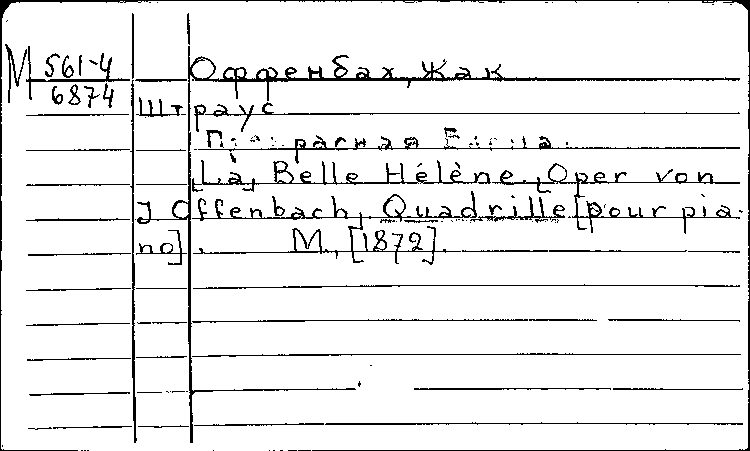 M 561-4
6874
Оффенбах, Жак
Штраус
Прекрасная Елена.
[La] Belle Hélène. [Oper von
J Offenbach]. Quadrille [pour pia-
no]. M., [1872].